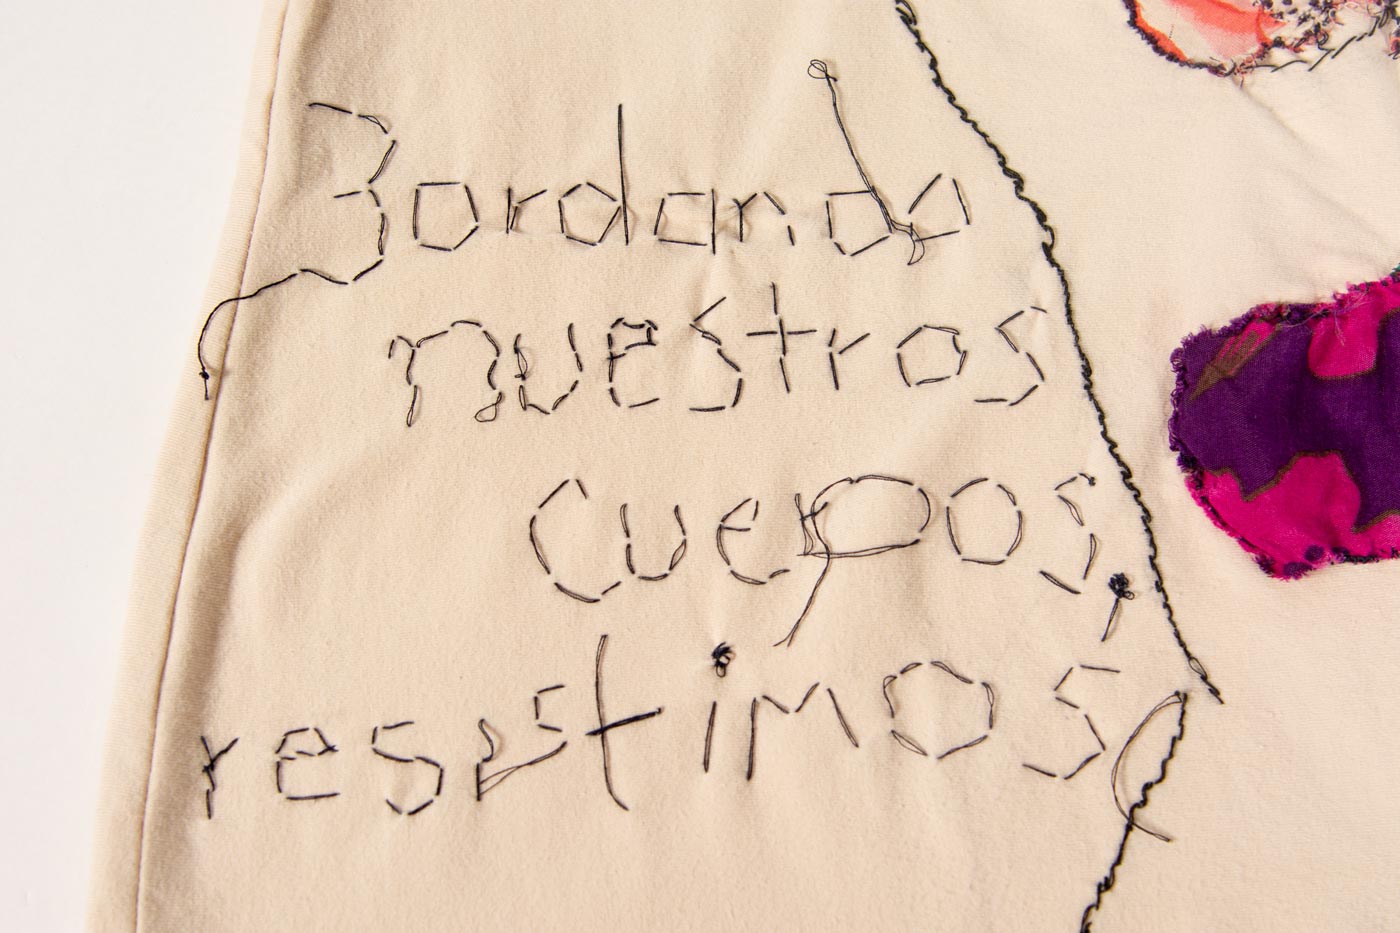 Bordando
nuestros
cuerpos,
resistimos